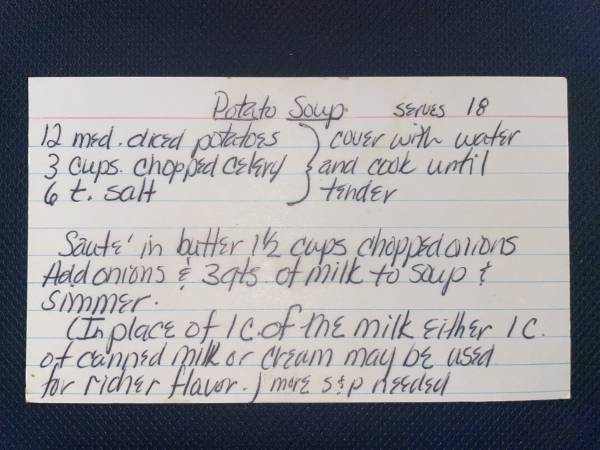 Potato Soup serves 18
12 med. diced potatoes } cover with water
3 cups chopped celery } and cook until
6 t. salt } tender
Sauté in butter 1 1/2 cups chopped onions
Add onions & 3 qts. of milk to soup &
simmer.
(In place of 1 c. of the milk either 1 c.
of canned milk or cream may be used
for richer flavor.) more s & p needed